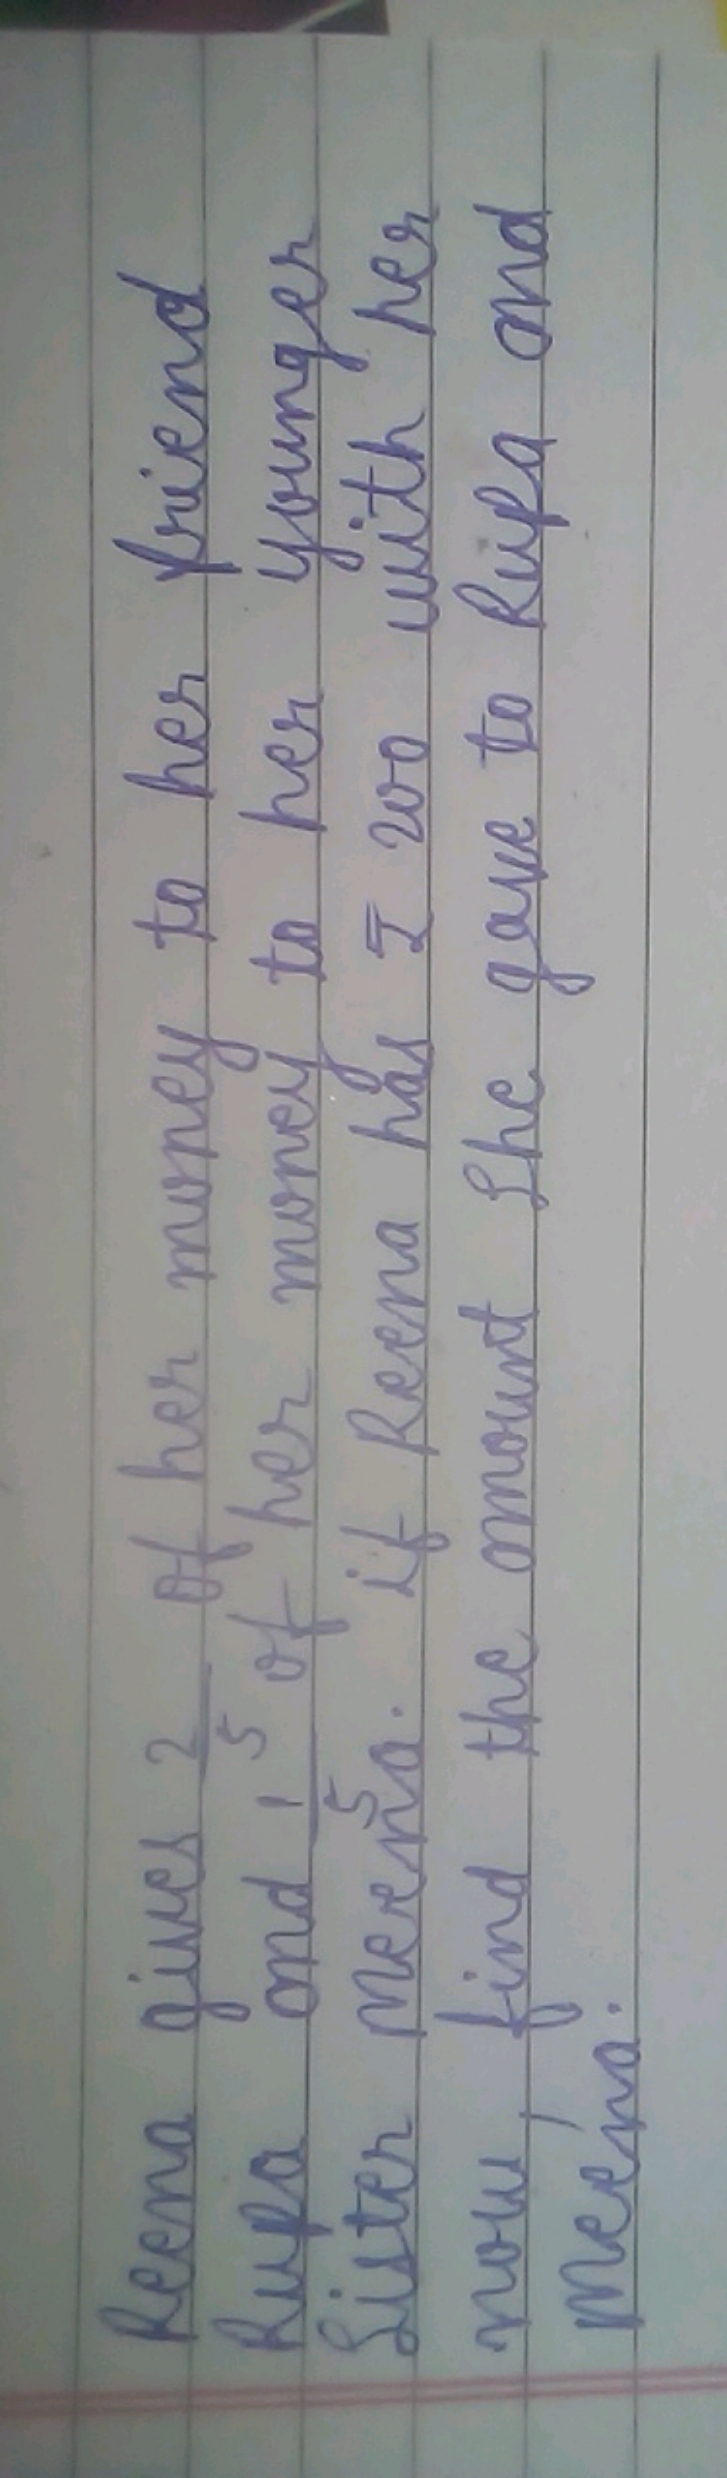 Reena gives 2/5 of her money to her friend
Rupa and 1/5 of her money to her younger
Sister Meena. if Reena has ₹ 200 with her
now, find the amount She gave to Rupa and
Meena.